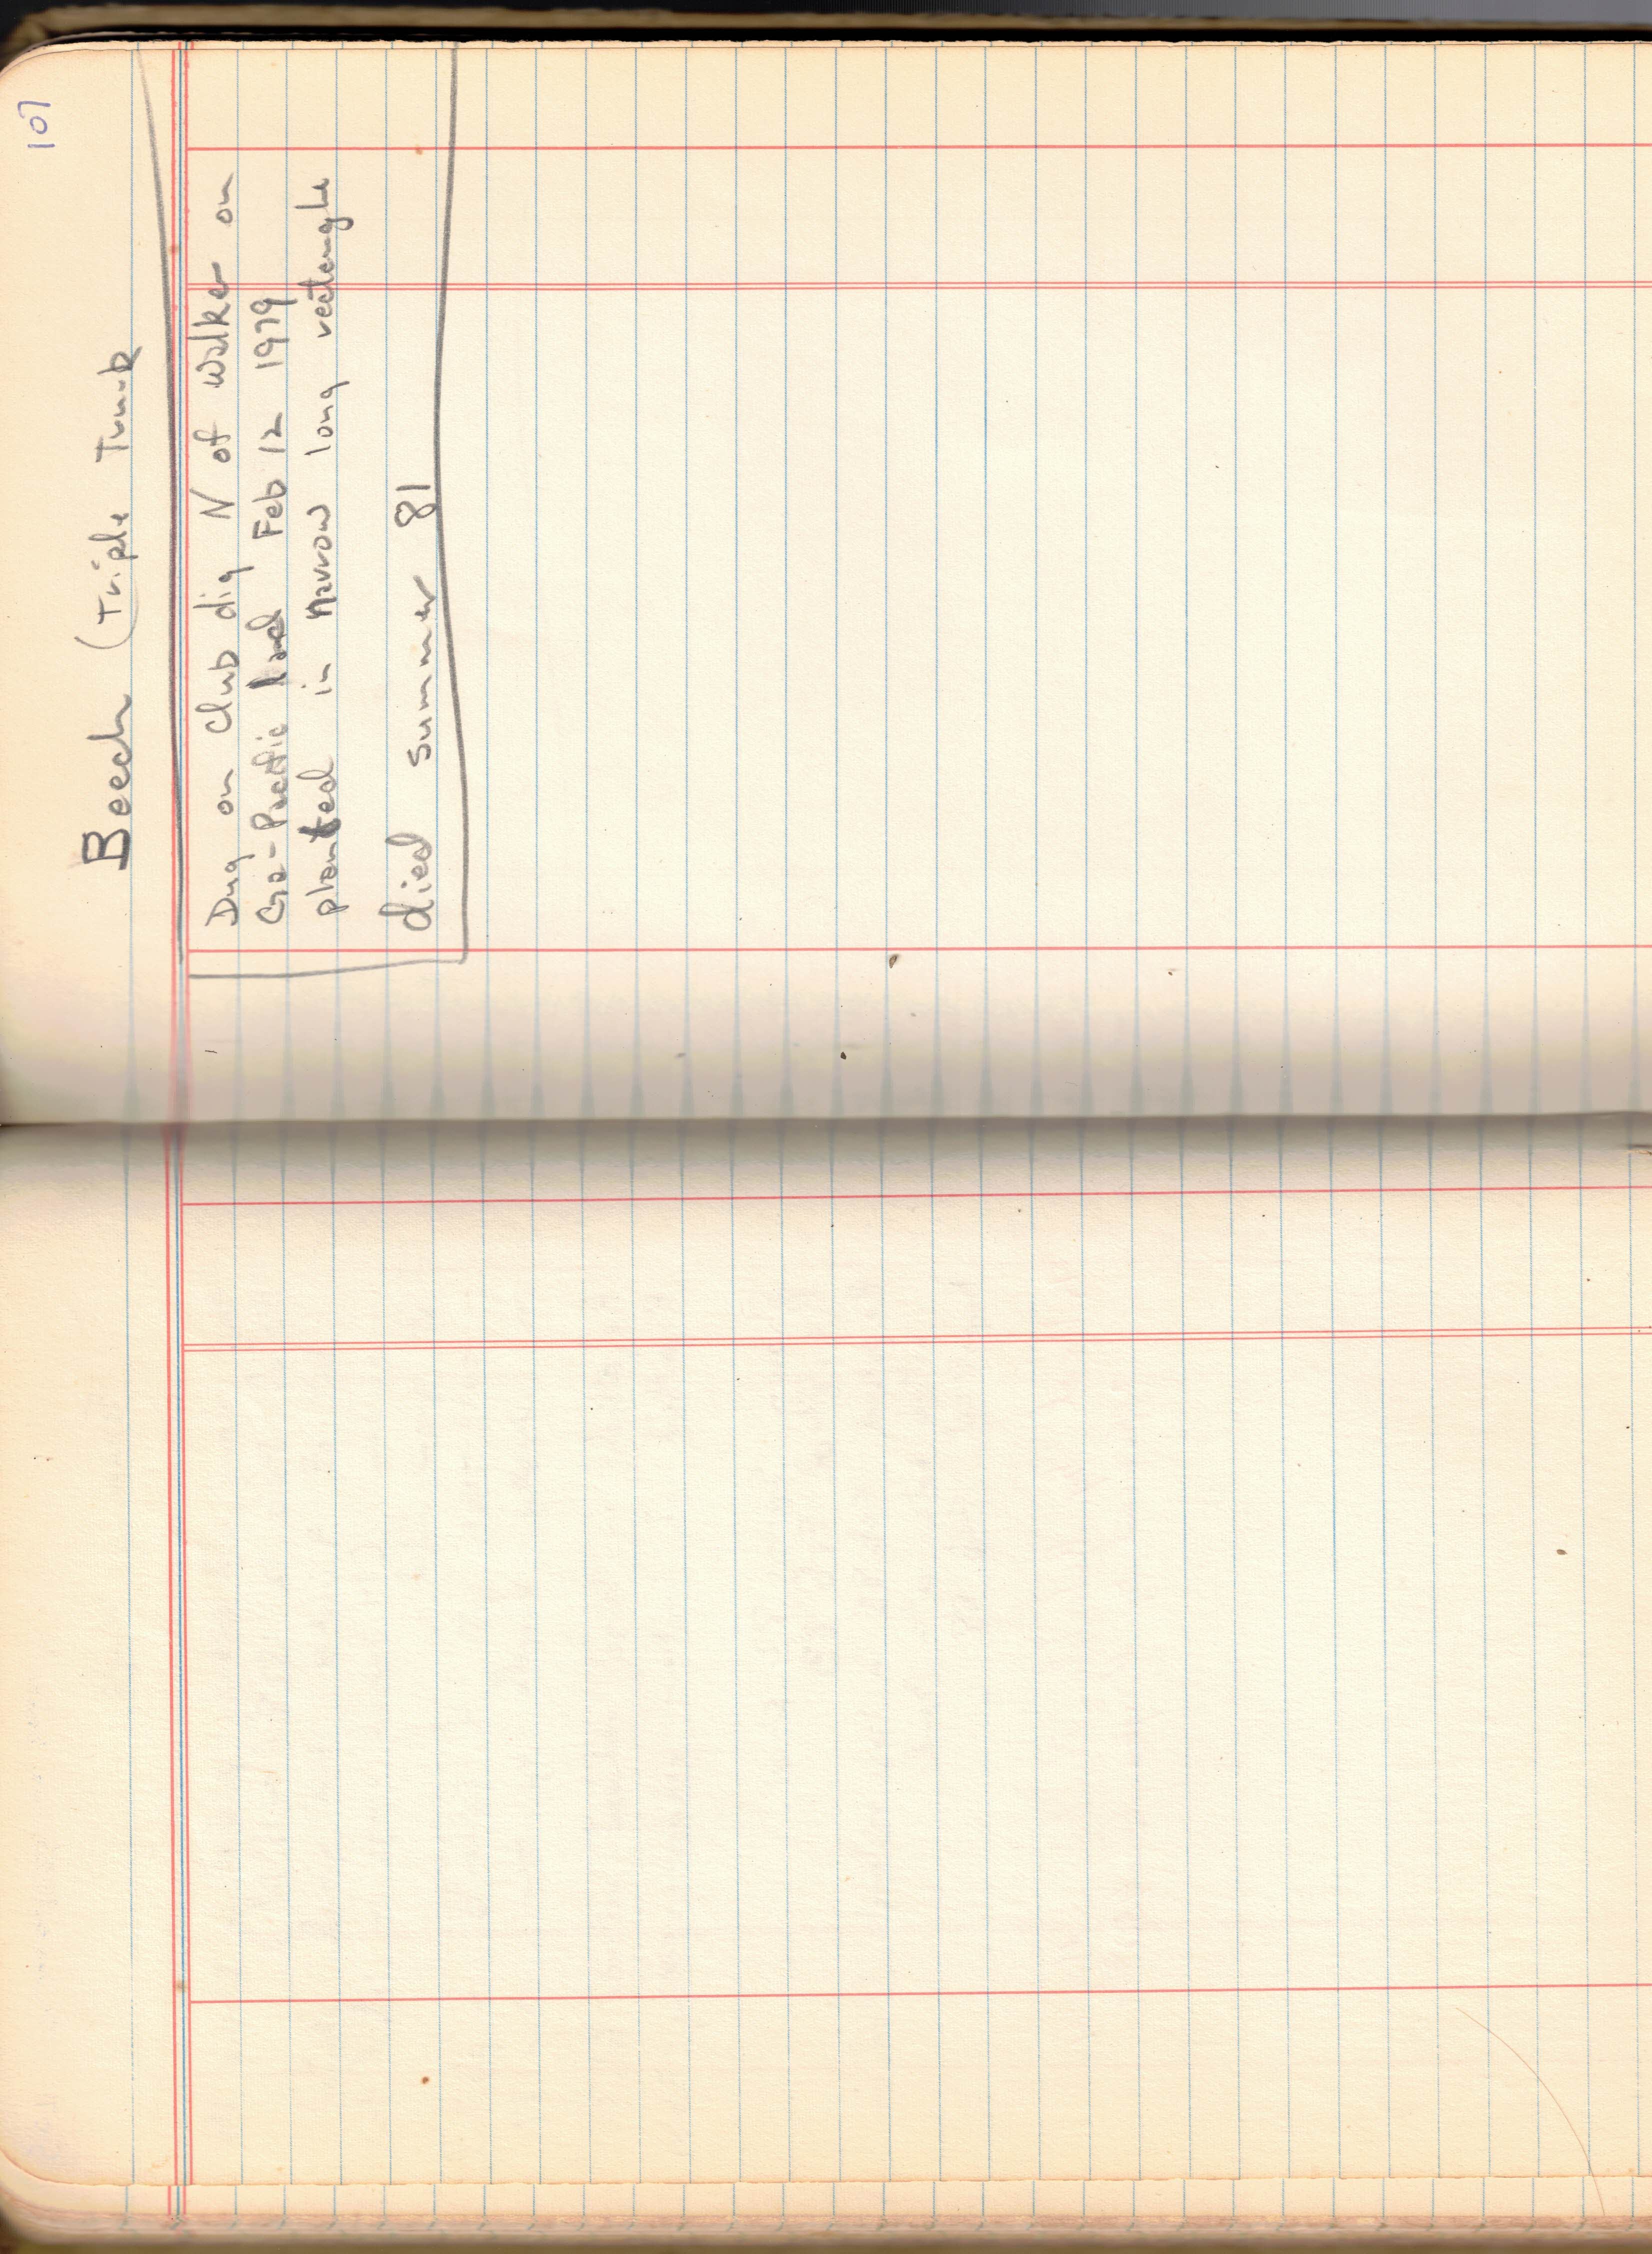 107
Beech (Triple Trunk
Dug on Club dig N of Walker on
Ga-Pacific land Feb 12 1979
planted in narrow long rectangle
died summer 81